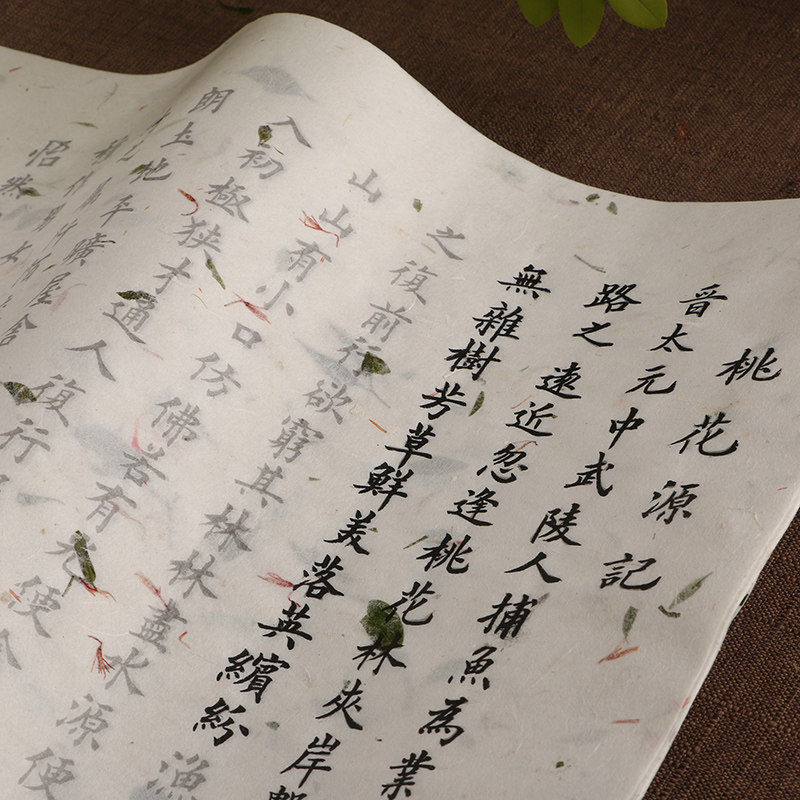 桃花源記
晉太元中武陵人捕魚為業
路之遠近忽逢桃花林夾岸數
無雜樹芳草鮮美落英繽紛漁
之復前行欲窮其林林盡水源便
山山有小口仿佛若有光便
入初極狹才通人復行
朗土地平曠屋舍